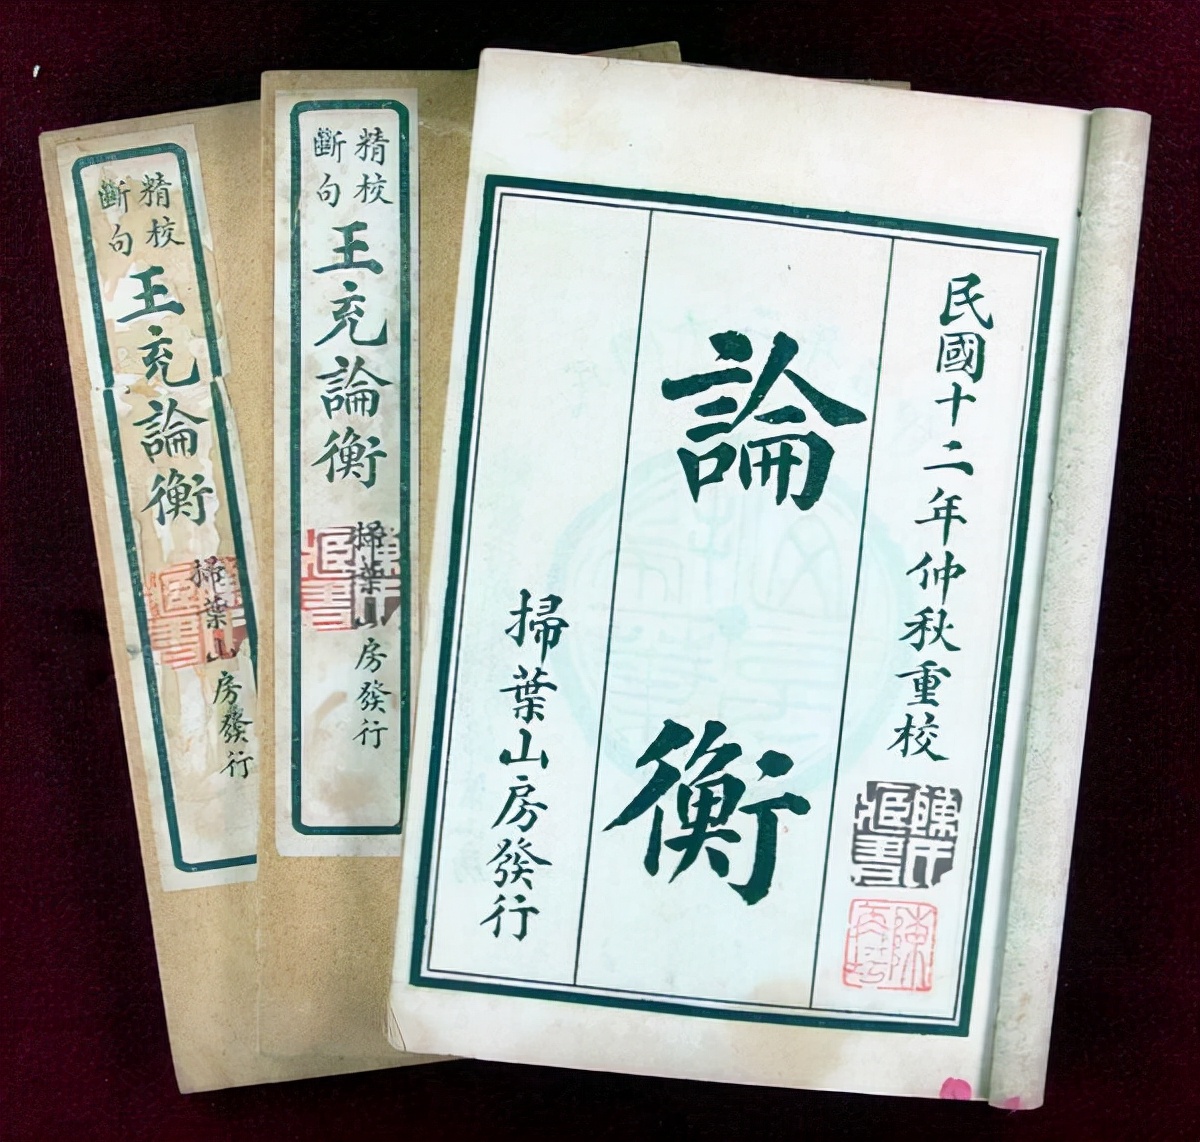 民國十二年仲秋重校
論衡
掃葉山房發行
精校
斷句
王充論衡
掃葉山房發行
精校
斷句
王充論衡
掃葉山房發行